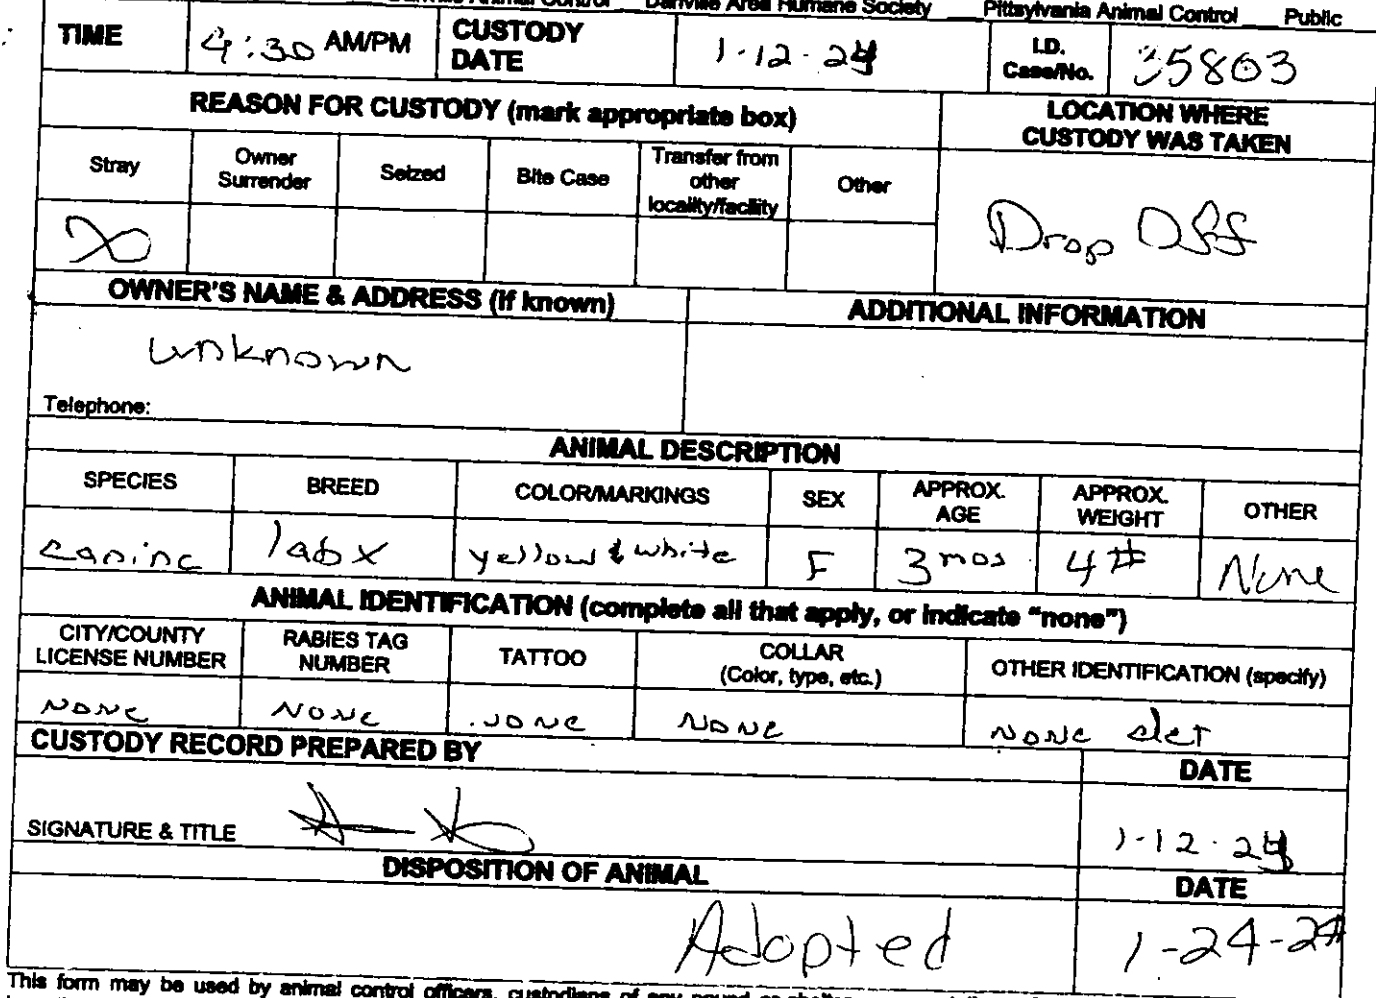 Danville Animal Control Danville Area Humane Society ___ Pittsylvania Animal Control ___ Public
TIME 4:30 AM/PM CUSTODY DATE 1-12-24 I.D. Case/No. 35803
REASON FOR CUSTODY (mark appropriate box) LOCATION WHERE CUSTODY WAS TAKEN
Stray Owner Surrender Seized Bite Case Transfer from other locality/facility Other
X Drop Off
OWNER'S NAME & ADDRESS (if known) ADDITIONAL INFORMATION
unknown
Telephone:
ANIMAL DESCRIPTION
SPECIES BREED COLOR/MARKINGS SEX APPROX. AGE APPROX. WEIGHT OTHER
canine lab x yellow & white F 3 mos 4# None
ANIMAL IDENTIFICATION (complete all that apply, or indicate "none")
CITY/COUNTY LICENSE NUMBER RABIES TAG NUMBER TATTOO COLLAR (Color, type, etc.) OTHER IDENTIFICATION (specify)
none none none none none det
CUSTODY RECORD PREPARED BY DATE
SIGNATURE & TITLE 1-12-24
DISPOSITION OF ANIMAL DATE
Adopted 1-24-24
This form may be used by animal control officers, custodians of any pound or shelter